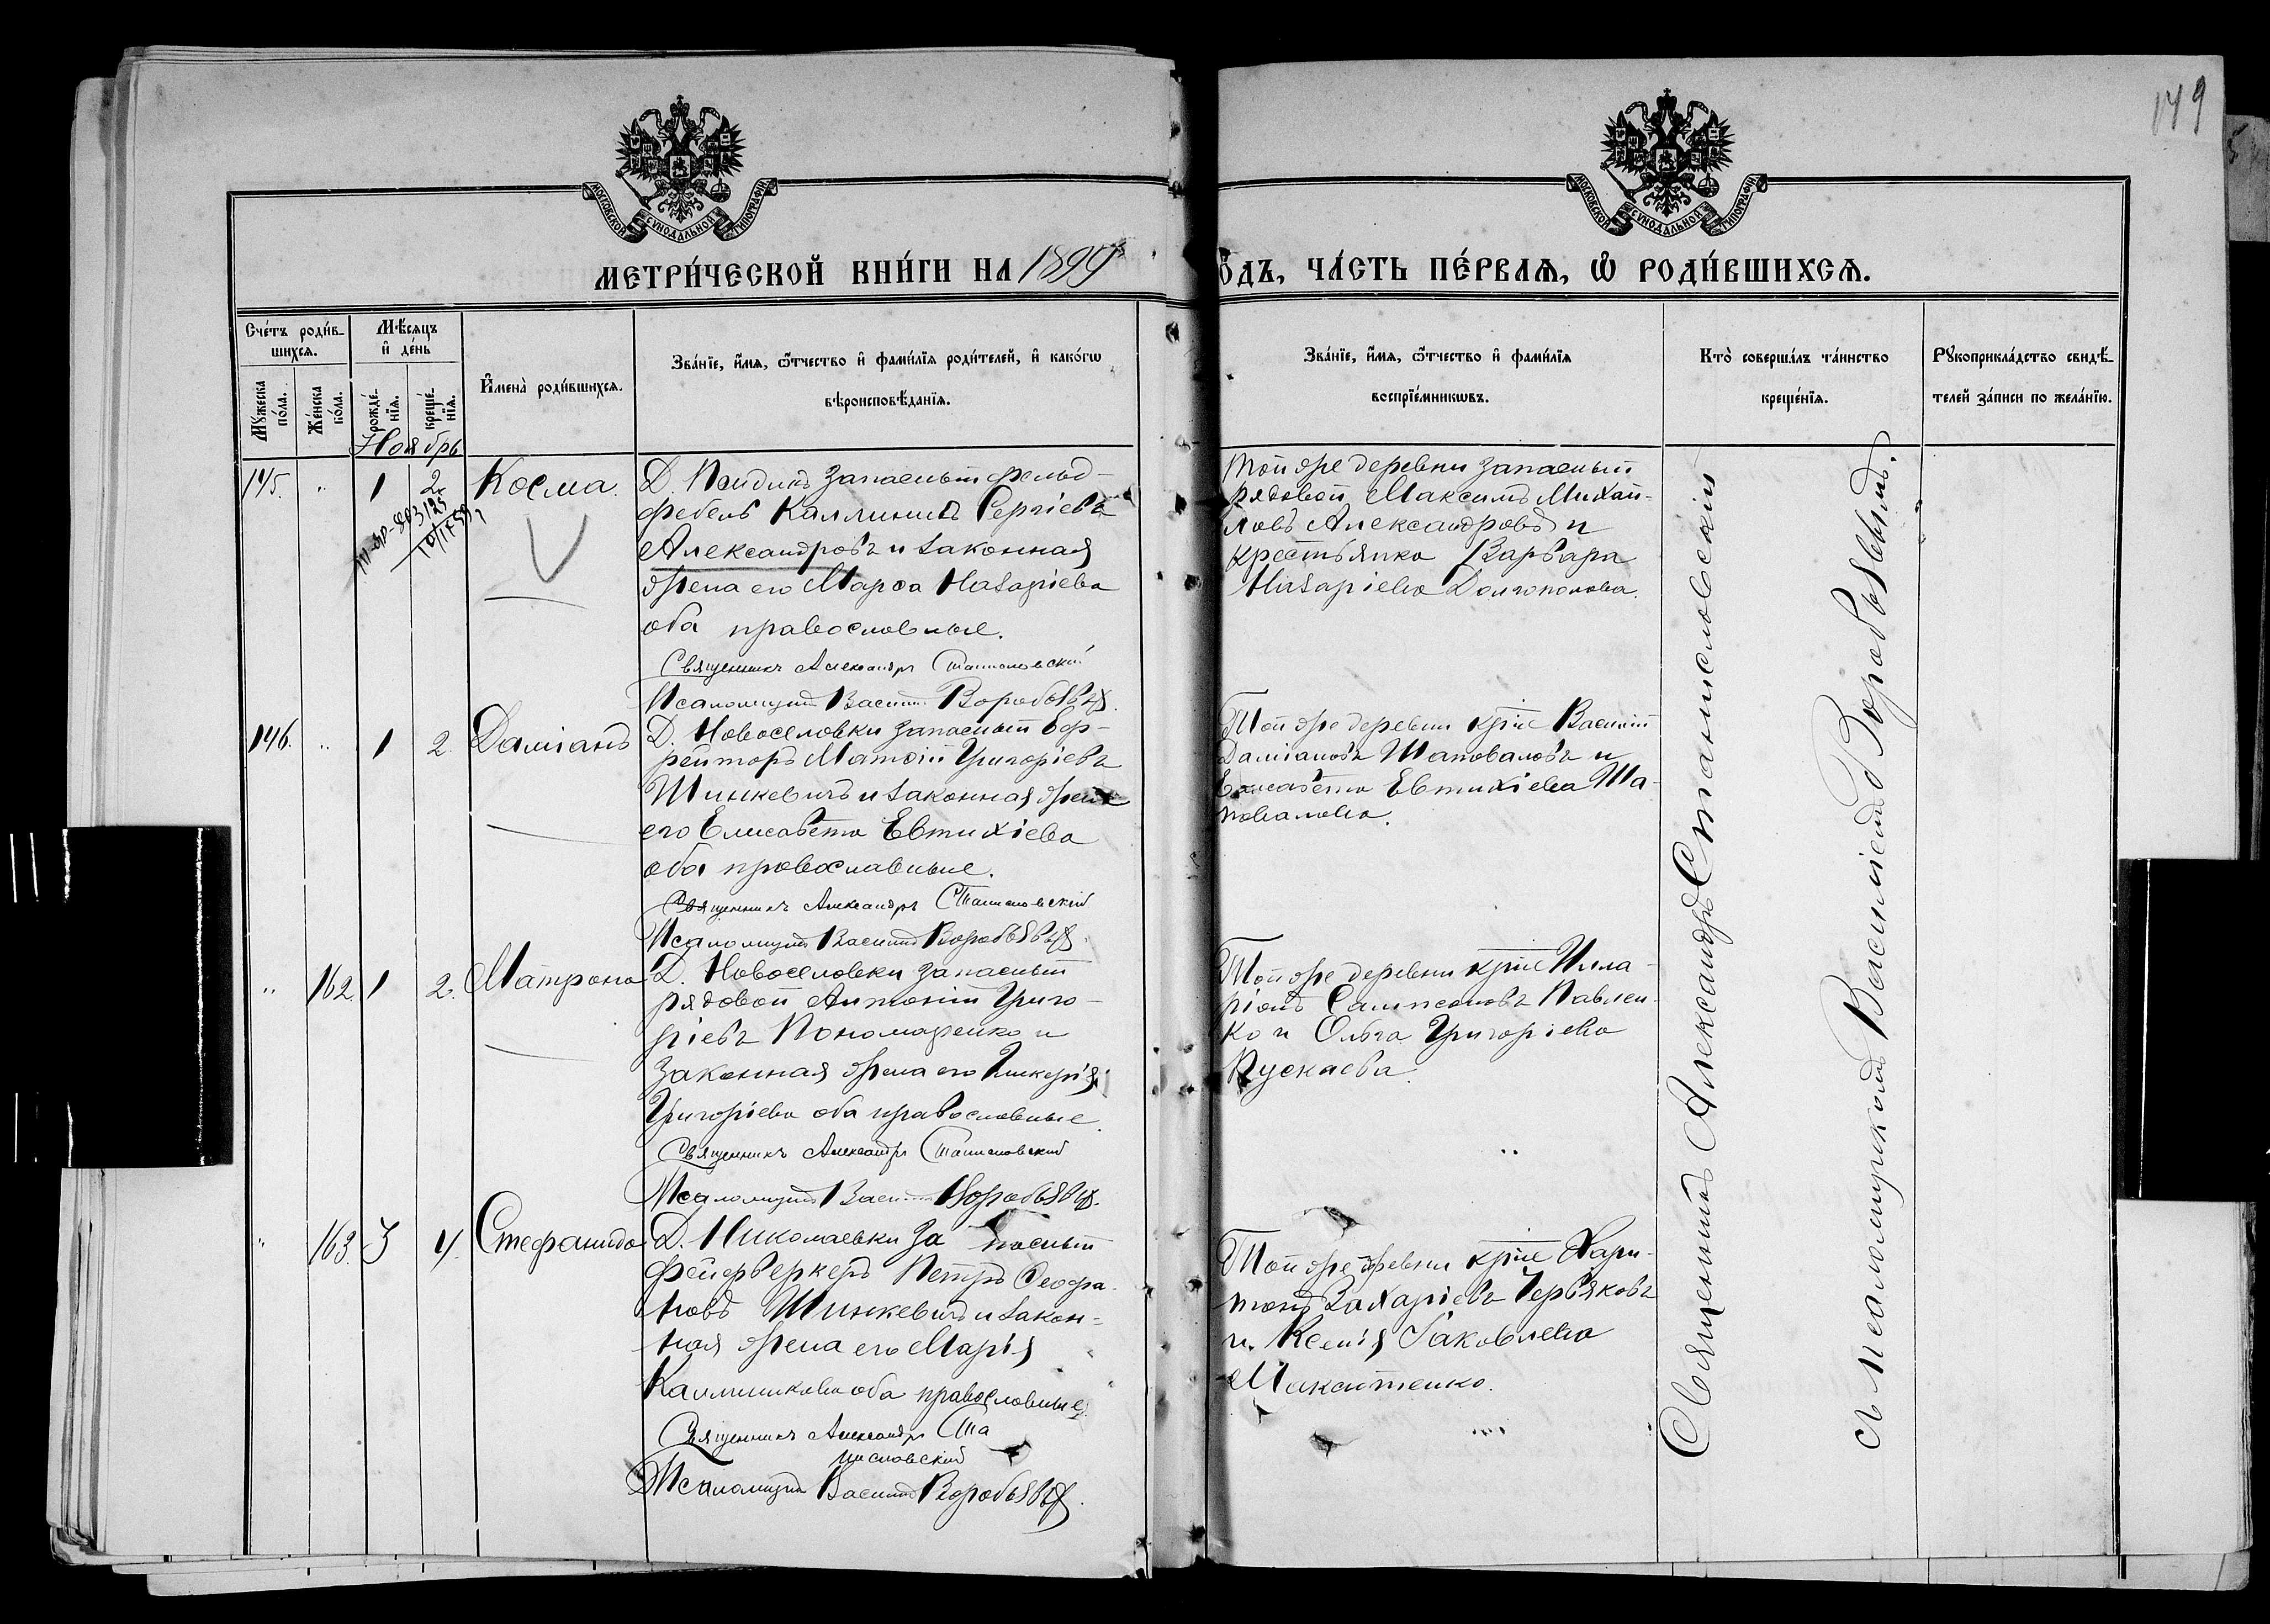 149
МОСКОВСКОЙ СѴНОДАЛЬНОЙ ТИПОГРАФІИ.
МОСКОВСКОЙ СѴНОДАЛЬНОЙ ТИПОГРАФІИ.
МЕТРИ́ЧЕСКОЙ КНИ́ГИ НА 1899
ОДЪ, ЧА́СТЬ ПЕ́РВАѦ, Ѽ РОДИ́ВШИХСѦ.
Сче́тъ роди́в-
шихсѧ.
Мꙋжеска по́ла.
Же́нска по́ла.
Мѣ́сѧцъ
и҆ де́нь
рожде́-нїѧ.
креще́-нїѧ.
И҆мена̀ роди́вшихсѧ.
Зва́нїе, и҆́мѧ, ѻ҆́тчество и҆ фами́лїѧ роди́телей, и҆ како́гѡ
вѣроисповѣ́данїѧ.
Зва́нїе, и҆́мѧ, ѻ҆́тчество и҆ фами́лїѧ
воспрїе́мникѡвъ.
Кто̀ соверша́лъ та́инство
креще́нїѧ.
Рꙋкоприкла́дство свидѣ́-
телей за́писи по жела́нїю.
Ноябрь
145. " 1 2 Косма.
Д. запасный фельд-
фебель Каллиникъ Сергіевъ
Александровъ и законная
жена его Марѳа Назаріева
оба православные.
Священникъ Александръ Станиславскій
Псаломщикъ Василій Воробьевъ.
Той же деревни запасный
рядовой Максимъ Михаи-
ловъ Александровъ и
крестьянка Варвара
Назаріева Долгополова.
146. " 1 2. Даміанъ
Д. Новоселовки запасный Еф-
рейторъ Матѳій Григоріевъ
Шинкевичъ и законная жена
его Елисавета Евтихіева
оба православные.
Священникъ Александръ Станиславскій
Псаломщикъ Василій Воробьевъ.
Той же деревни крте Василій
Даміановъ Шаповаловъ и
Елисавета Евтихіева Ша-
повалова.
" 162. 1 2. Матрона
Д. Новоселовки запасный
рядовой Антоній Григо-
ріевъ Пономаренко и
законная жена его Гликерія
Григоріева оба православные.
Священникъ Александръ Станиславскій
Псаломщикъ Василій Воробьевъ.
Той же деревни крте Илла-
ріонъ Сампсоновъ Павлен-
ко и Ольга Григоріева
Кускаева.
" 163. 3 4. Стефанида
Д. Николаевки запасный
фейерверкеръ Петръ Ѳеофа-
новъ Шинкевичъ и закон-
ная жена его Марія
Каллиникова оба православные.
Священникъ Александръ Ста
ниславскій
Псаломщикъ Василій Воробьевъ.
Той же деревни крте Хари-
тонъ Захаріевъ Червяковъ
и Ксенія Іаковлева
Макитенко.
Священникъ Александръ Станиславскій
съ псаломщикомъ Василіемъ Воробьевымъ.